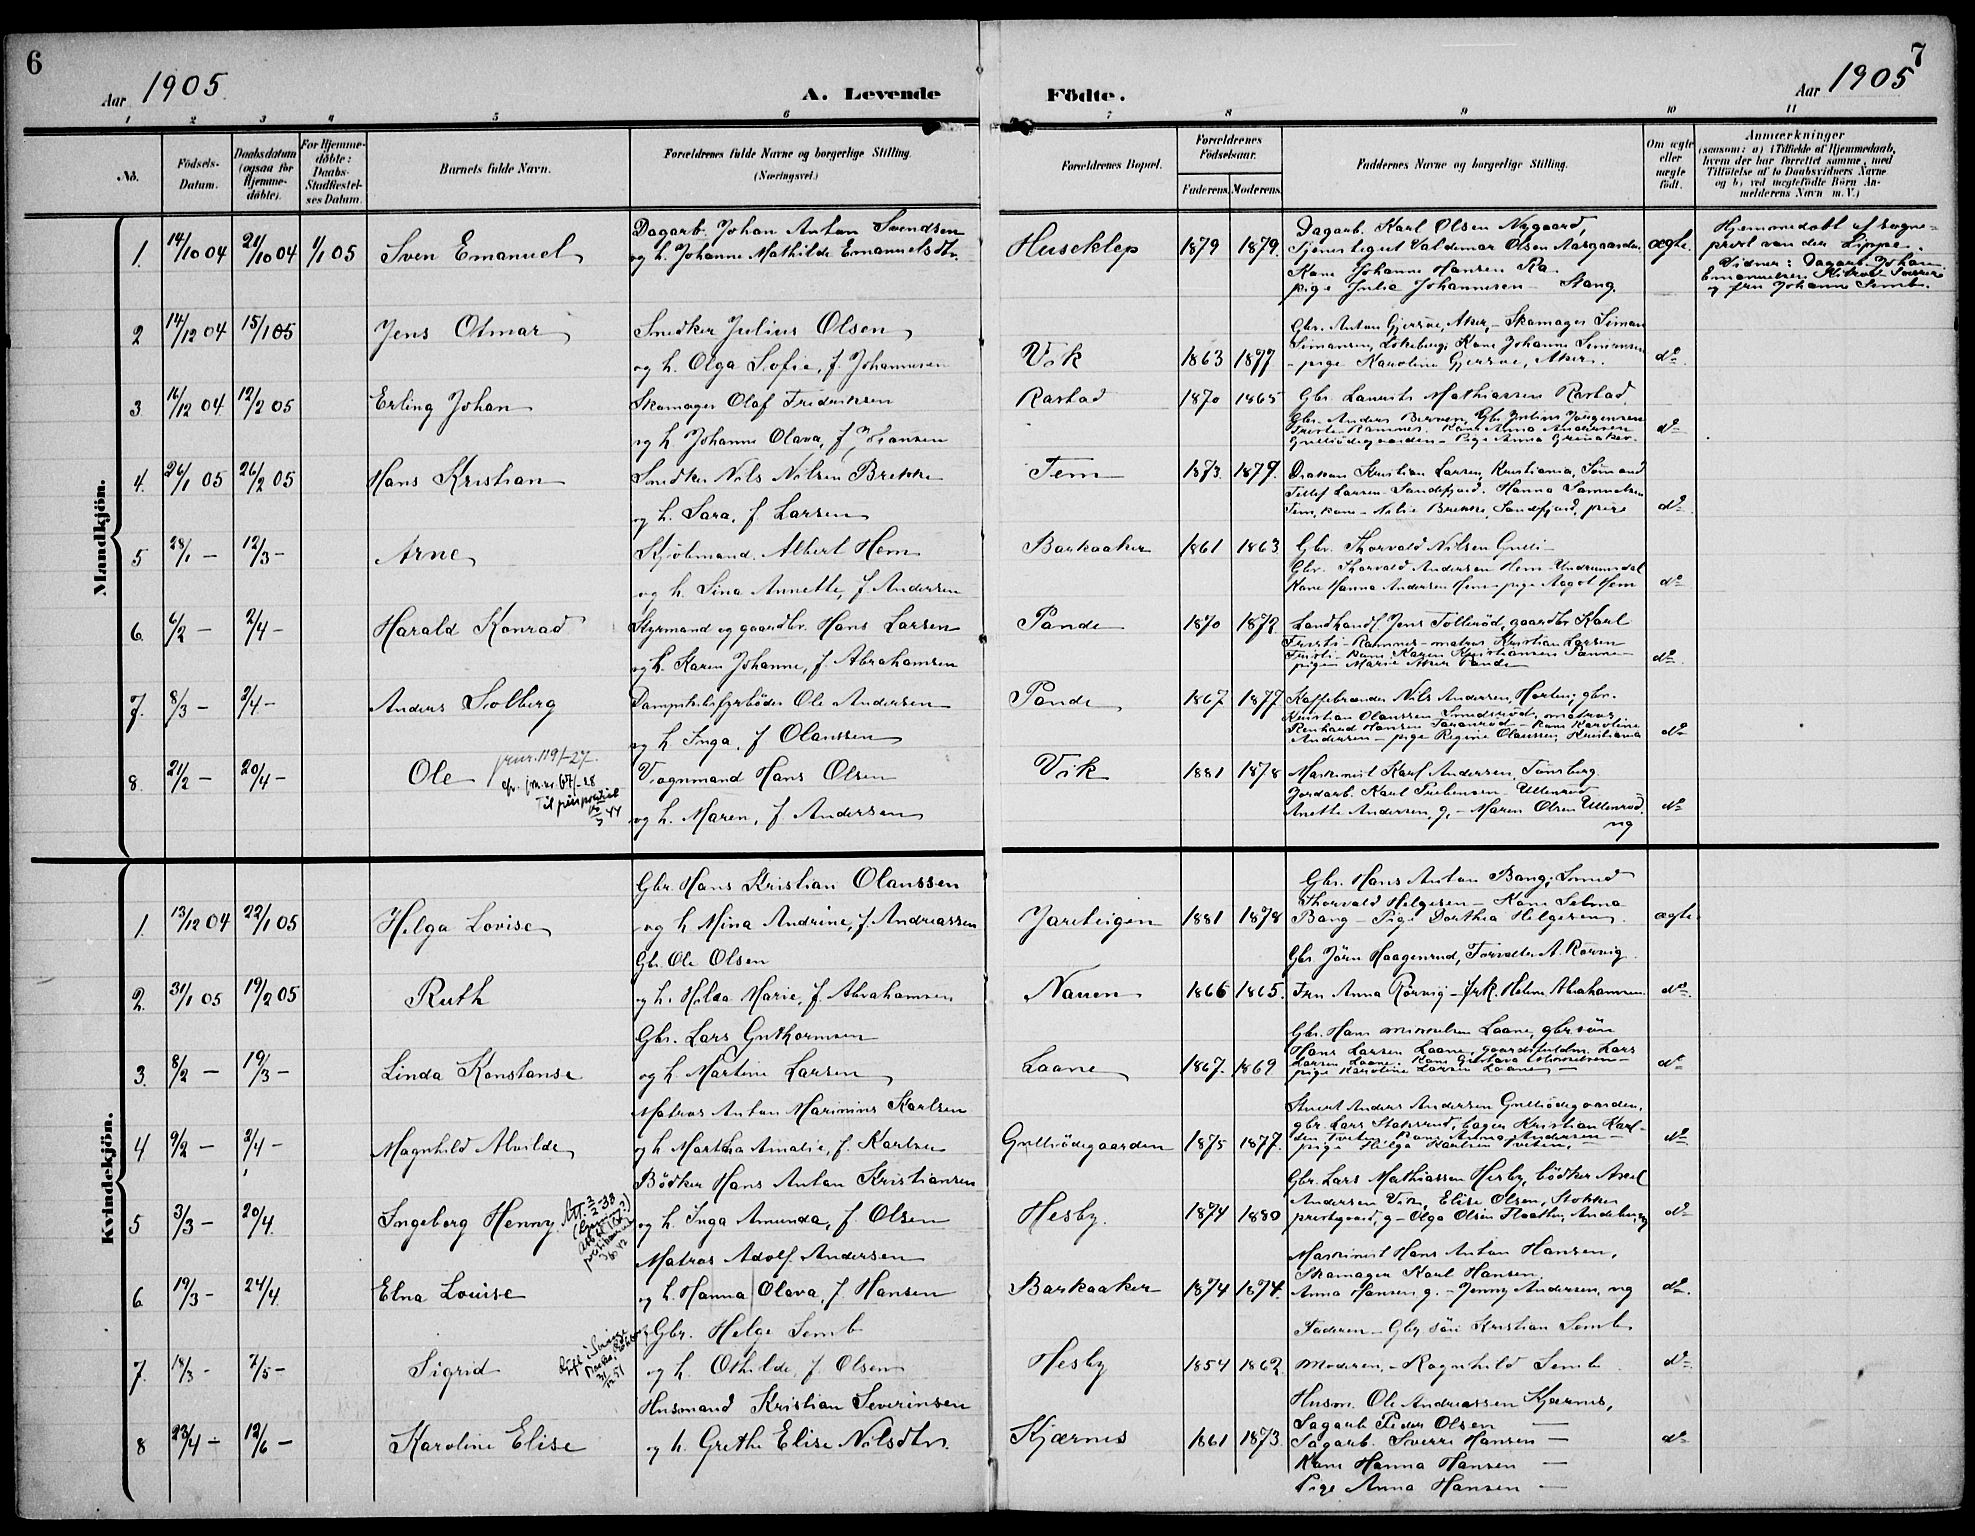 6
Aar 1905.
A. Levende
Födte.
Aar 1905
7
1 2 3 4 5 6 7 8 9 10 11
No.
Födsels-Datum.
Daabsdatum (ogsaa for Hjemme-döbte).
For Hjemme-döbte: Daabs-Stadfæstel-ses Datum.
Barnets fulde Navn.
Forældrenes fulde Navne og borgerlige Stilling. (Næringsvei.)
Forældrenes Bopæl.
Forældrenes Födselsaar.
Faderens. Moderens.
Faddernes Navne og borgerlige Stilling.
Om ægte eller uægte födt.
Anmærkninger
(saasom: a) i Tilfælde af Hjemmedaab,
hvem der har forrettet samme, med
Tilföielse af to Daabsvidners Navne
og b) ved uægtefödte Börn An-
melderens Navn m. V.)
Mandkjön.
1. 14/10 04 21/10 04 1/1 05 Sven Emanuel
Dagarb. Johan Anton Svendsen
og h. Johanne Mathilde Emanuelsdtr.
Huseklep 1879 1879.
Dagarb. Karl Olsen Nygaard,
Tjenestegut Valdemar Olsen Aasgaarden
Kone Johanne Hansen Ra
pige Julie Johannesen - Stang.
ægte.
Hjemmedøbt af sogne-
prest van der Lippe.
Vidner: Dagarb. Johan
Emanuelsen
og fru Johanne Semb.
2 14/12 04 15/1 05 Jens Otmar
Snedker Julius Olsen
og h. Olga Sofie, f. Johannesen
Vik 1863 1877
Gbr. Anton Gjersøe, Aker, - Skomager Simon
Simonsen, Løkeberg, Kone Johanne Simonsen
- pige Karoline Gjersøe, Aker.
do
3 16/12 04 12/2 05 Erling Johan
Skomager Olaf Fredriksen
og h. Johanne Olava, f. Hansen
Rastad 1870 1865
Gbr. Laurits Mathiassen Rastad
Gbr. Anders Gbr. Julius Jørgensen
Kone Anna Andersen
Gulliødegaarden - Pige Anna Grinaker.
do
4. 26/1 05 26/2 05 Hans Kristian
Snedker Nils Nilsen Brekke
og h. Sara, f. Larsen
Tem 1873 1879.
Kristian Larsen, Kristiania, Sømand
Tellef Larsen - Sandefjord. Hanna Samuelsen
Tem, kone - Brekke, Sandefjord, pige
do
5 28/1 - 12/3 - Arne
Skjølmand Albert Hem
og h. Lina Annette, f. Andersen
Barkaaker 1861 1863
Gbr. Thorvald Nilsen Gulli -
Gbr. Thorvald Andersen Hem - Undrumsdal
Kone Hanna Andersen Hem - pige Aagot Hem
do
6. 6/2 - 2/4 - Harald Konrad
Styrmand og gaardbr. Hans Larsen
og h. Karen Johanne, f. Abrahamsen
Pande 1870 1872
Landhandl. Jens Tollerød, gaardbr Karl
Ramnes - matros Kristian Larsen
Kone Karen Kristiansen Pande -
pige Marie Aker Pande
do
7. 8/3 - 2/4 - Anders Solberg
Dampskibsfyrbøder Ole Andersen
og h. Inga, f. Olaussen
Pande 1867 1877
Kaffebrænder Nils Andersen, Horten, gbr.
Kristian Olaussen Smidsrød, matros
Hansen - Kone Karoline
Andersen - pige Regine Olaussen, Kristiania
do
8. 21/2 - 20/4 - Ole
Til
Vognmand Hans Olsen
og h. Maren, f. Andersen
Vik 1881 1878
Maskinist Karl Andersen, Tønsberg
Jordarb. Karl Prebensen - Ullenrød
Anette Andersen, g, - Maren Olsen Ullenrød.
ug
do
Kvindekjön.
1. 13/12 04 22/1 05 Helga Lovise
Gbr. Hans Kristian Olaussen
og h Mina Andrine, f. Andreassen
Jareteigen 1881 1878
Gbr. Hans Anton Bang; Smed
Thorvald Helgesen - Kone Selma
Bang - Pige Dorthea Helgesen
ægte
2. 31/1 05 19/2 05 Ruth
Gbr. Ole Olsen
og h. Hilda Marie, f Abrahamsen
Nauen 1866 1865.
Gbr. Jørn Haagenrud, Forvalter A. Rørvig.
Fru Anna Rørvig - frk. Helene Abrahamsen
do.
3. 8/2 - 19/3 - Linda Konstanse
Gbr. Lars Guthormsen
og h. Martine Larsen
Laane 1867. 1869
Gbr. Hans Mikkelsen Laane, gbr. søn
Hans Larsen Laane, gaardsfuldm. Lars
Larsen Laane. Kone Gustava Mikkelsen -
pige Karoline Larsen Laane -
do
4 9/2 - 2/4 - Magnhild Alvilde
Matros Anton Marinius Karlsen
og h Martha Amalie, f. Karlsen
Gulliødegaarden 1875 1877.
Stuert Anders Andersen Gulliødegaarden,
gbr. Lars bager Kristian Karl-
Tveten, Kone Anna Andersen -
pige Helga Karlsen Tveten,
do
5 3/3 - 20/4. Ingeborg Henny.
Bødker Hans Anton Kristiansen
og h. Inga Amunda, f. Olsen
Hesby. 1874 1880
Gbr. Lars Mathiassen Hesby, bødker Axel
Andersen Vik, Elise Olsen, Stokke
prestegaard, g - Olga Olsen Andebu, ug
do
6. 19/3 - 24/4. Elna Louise
Matros Adolf Andersen
og h. Hanna Olava, f Hansen
Barkaaker 1874 1874.
Maskinist Hans Anton Hansen,
Skomager Karl Hansen
Anna Hansen g. - Jenny Andersen, ug
do.
7. 18/3 - 7/5 - Sigrid
Gift i
Gbr. Helge Semb
og h. Othilde, f. Olsen
Hesby 1854 1862
Faderen - Gbr. søn Kristian Semb
Moderen, - Ragnhild Semb
do
8 23/4 - 12/6 - Karoline Elise
Husmand Kristian Severinsen
og h. Grethe Elise Nilsdtr.
Kjærnes 1861 1873.
Husm. Ole Andreassen Kjærnes,
Sagarb Peder Olsen -
Sagarb. Sverre Hansen -
Kone Hanna Hansen -
Pige Anna Hansen -
do